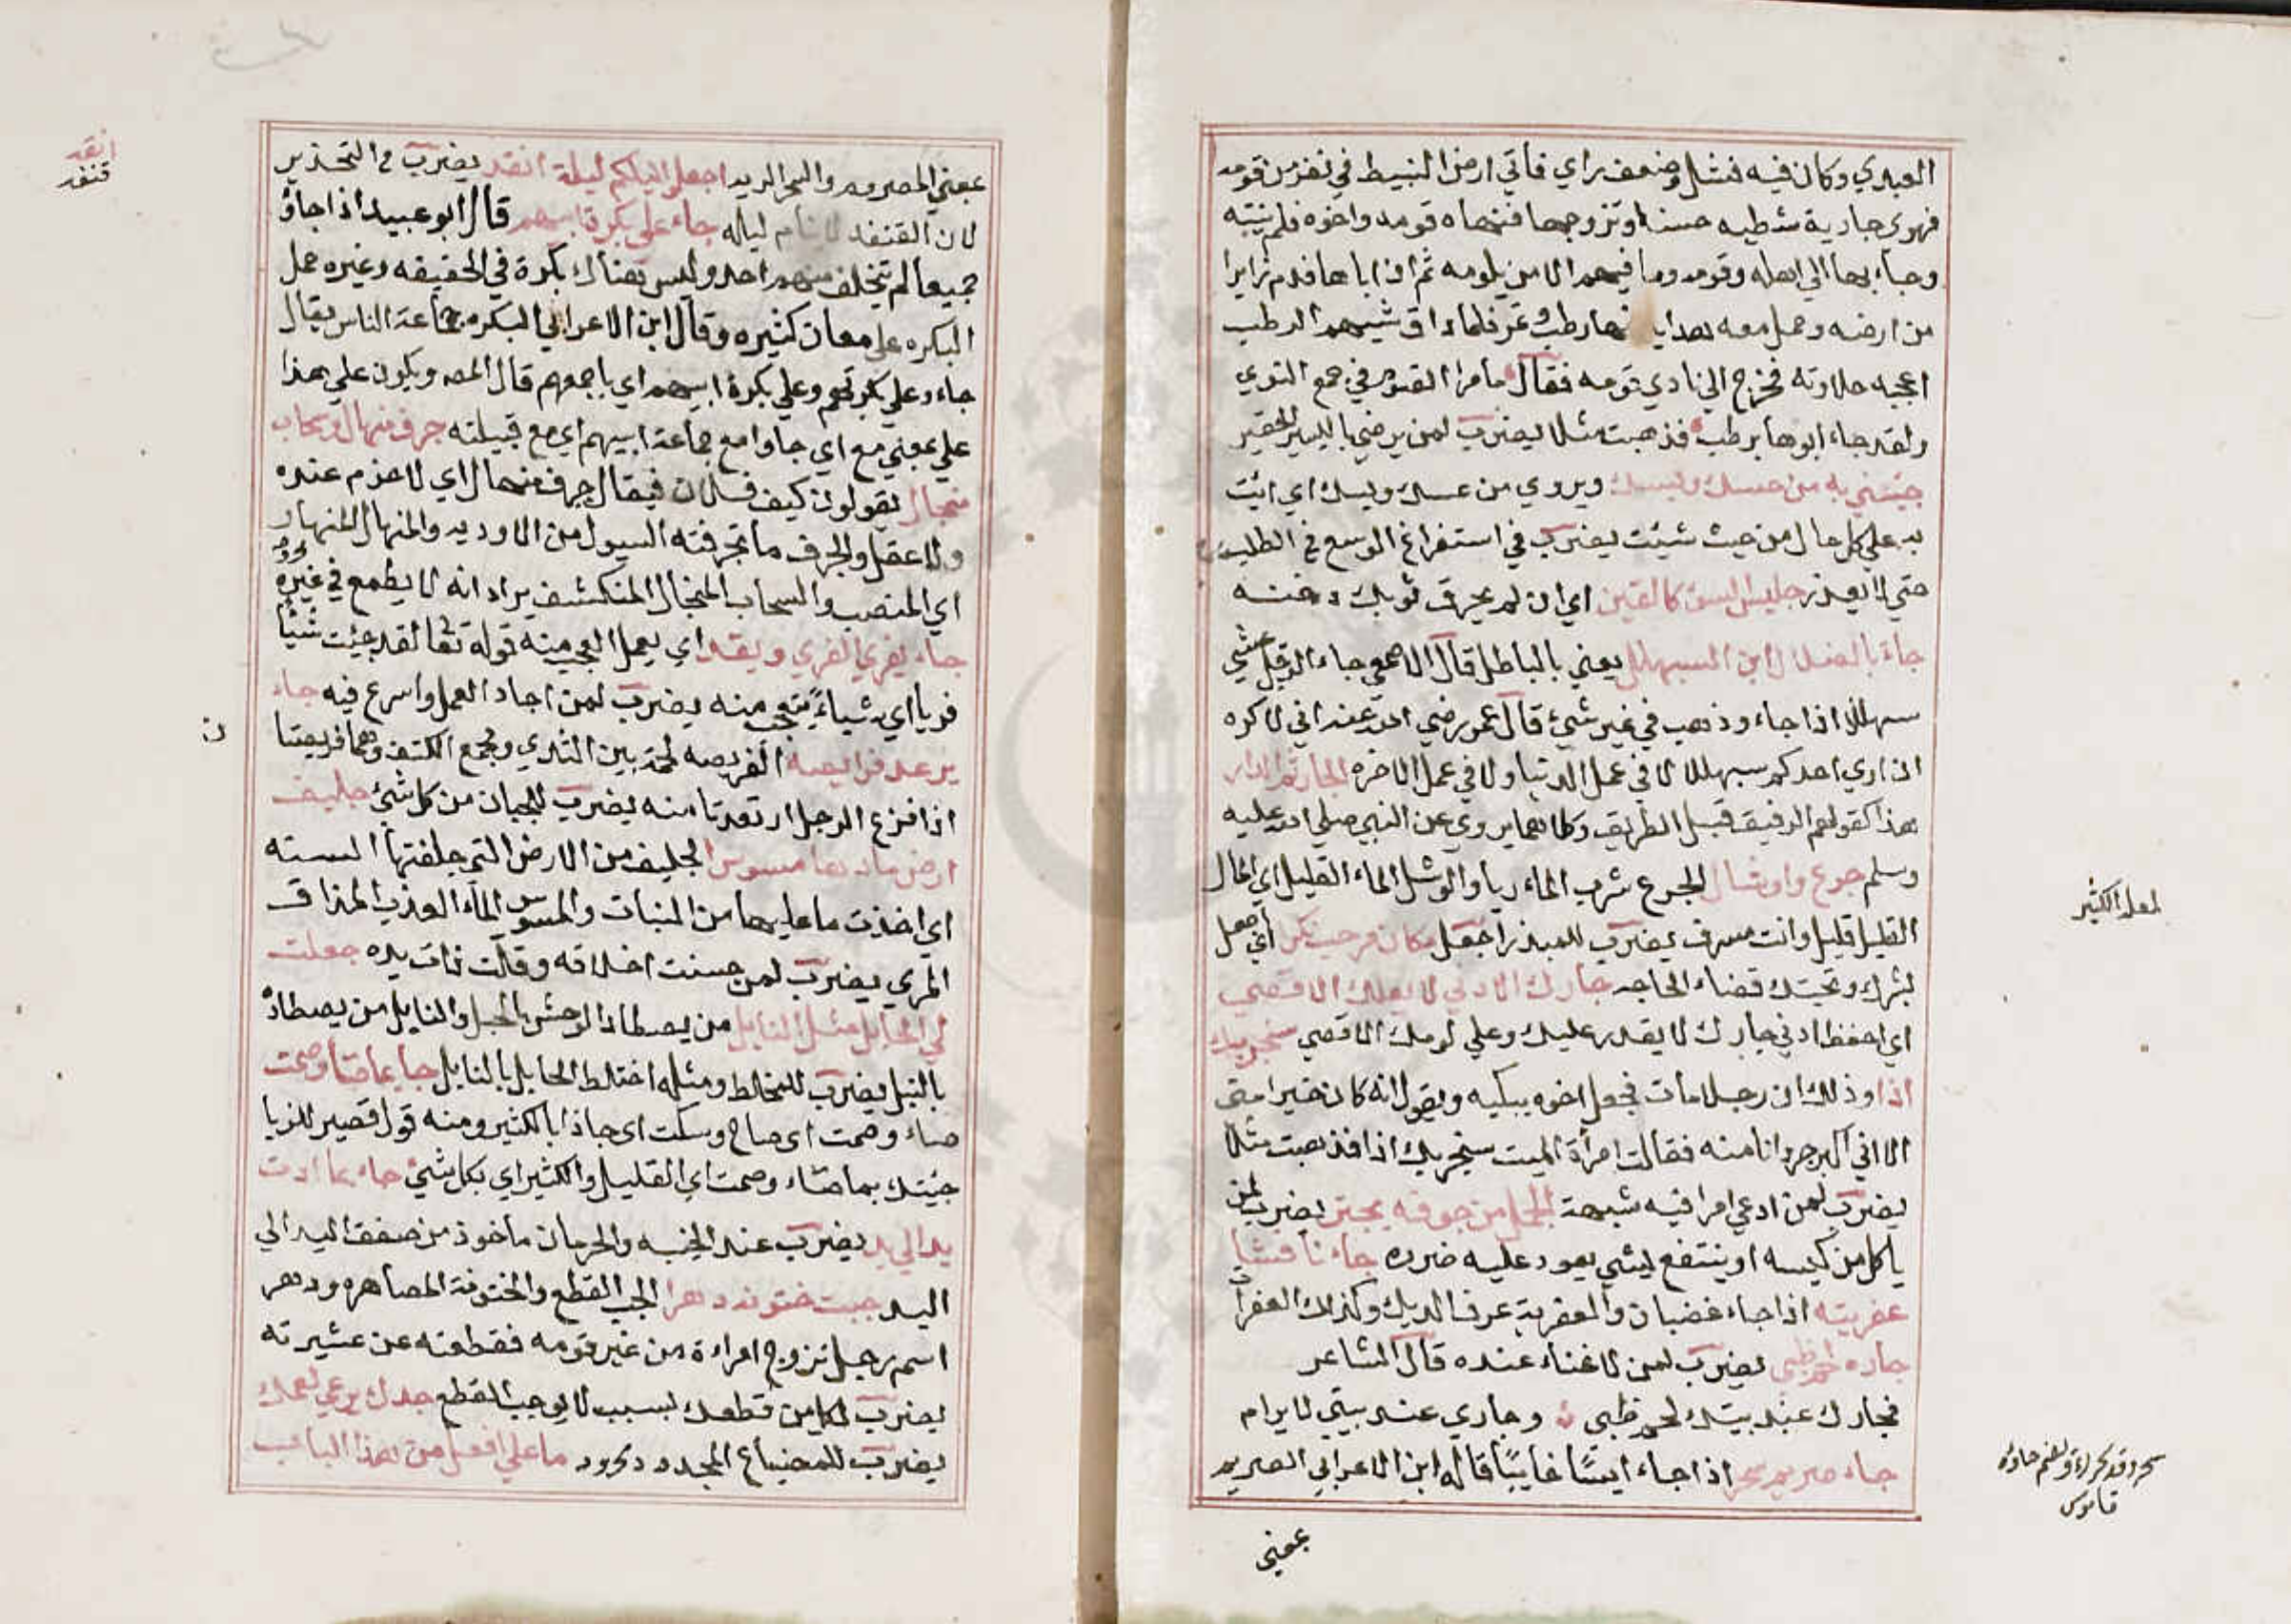 العبدي وكان فيه فشل وضعف راي فاتي ارض النبيط في نفر من قومه
فهوي جارية نبطيه حسنا وتزوجها فنهاه قومه واخوه فلم ينته
وجاء بها الي اهله وقومه وما فيهم الا من يلومه ثم ان اباها قدم زايرا
من ارضه وحمل معه هدايا منها رطب وتمر فلما ذاق شيهم الرطب
اعجبه حلاوته فخرج الي نادي قومه فقال ما مرا القوم في جمع النوي
ولقد جاء ابوها برطب فذهبت مثلا يضرب لمن يرضي باليسير الحقير
جيئني به من حسك وبسك ويروي من عسك وبسك اي ائت
به علي كل حال من حيث شيئت يضرب في استفراغ الوسع في الطلب
حتي لا يعذر جليس السؤ كالقين اي ان لم يحرق ثوبك دخنه
جاء بالضلال ابن السبهلل يعني بالباطل قال الاصمعي جاء الرجل يمشي
سبهللا اذا جاء وذهب في غير شيئ قال عمر رضي الله عنه اني لاكره
ان اري احدكم سبهللا لا في عمل الدنيا ولا في عمل الاخره الجار ثم الدار
هذا كقولهم الرفيق قبل الطريق وكلاهما يروي عن النبي صلي الله عليه
وسلم جرع واوشال الجرع شرب الماء ريا والوشل الماء القليل اي المال
القليل قليل وانت مسرف يضرب للمبذر اجعل مكان مرحب نكرا اي اجعل
بشرك وتحيتك قضاء الحاجه جارك الادني لا يعلك الاقصي
اي احفظ ادني جارك لا يقدر عليك وعلي لومك الاقصي سنجريك
اذا وذلك ان رجلا مات فجعل اخوه يبكيه ويقول انه كان خيرا مني
الا اني اكبر جردانا منه فقالت امرأة الميت سنجريك اذا فذهبت مثلا
يضرب لمن ادعي امرا فيه شبهة الجمل من جوفه يجتر يضرب لمن
ياكل من كيسه او ينتفع بشي يعود عليه ضرره جاء نافشا
عفريته اذا جاء غضبان والعفرية عرف الديك وكذلك العفراة
جاره لحم ظبي يضرب لمن لا غناء عنده قال الشاعر
فجارك عند بيتك لحم ظبي وجاري عند بيتي لا يرام
جاء صريم سحر اذا جاء ايسا خايبا قاله ابن الاعرابي الصريم
بمعني
لعله الكثير
قاموس
بمعني المصروم والسحر الريه اجعلوا ليلكم ليلة انقد يضرب في التحذير
لان القنفد لا ينام ليله جاء علي بكرة ابيهم قال ابو عبيد اذا جاؤ
جميعا لم يتخلف منهم احد وليس هناك بكرة في الحقيقه وغيره حمل
البكره علي معان كثيره وقال ابن الاعرابي البكره جماعة الناس يقال
جاء وعلي بكرتهم وعلي بكرة ابيهم اي باجمعهم قال المصـ ويكون علي هذا
علي بمعني مع اي جاوا مع جماعة ابيهم اي مع قبيلته جرف منهال وسحاب
منجال يقولون كيف فلان فيقال جرف منهال اي لا حزم عنده
ولا عقل والجرف ما تجرفته السيول من الاوديه والمنهال المنهار
اي المنصب والسحاب المنجال المنكشف يراد انه لا يطمع في خيره
جاء يفري الفري ويقد اي يعمل العجب منه قوله تعالي لقد جيئت شيئا
فريا اي شياء يتعجب منه يضرب لمن اجاد العمل واسرع فيه جاء
يرعد فرايصه الفريصه لحمة بين الثدي ومجمع الكتف وهما فريصتا
اذا فزع الرجل ارتعدتا منه يضرب للجبان من كل شيئ جليف
ارض ماءها مسوس الجليف من الارض التي جلفتها السنه
اي اخذت ما عليها من النبات والمسوس الماء العذب المذاق
المري يضرب لمن حسنت اخلاقه وقلت ذات يده جعلت
لي الحابل مثل النابل من يصطاد الوحش بالحبل والنابل من يصطاد
بالنبل يضرب للمخلط ومثله اختلط الحابل بالنابل جا بما صاء وصمت
صاء وصمت اي صاح وسكت اي جا ذا بالكثير ومنه قول قصير للزبا
جيئتك بما صاء وصمت اي القليل والكثير اي بكل شيئ جاء بما ادت
يد الي يد يضرب عند الخيبه والحرمان ماخوذ من صفق اليد الي
اليد جبت ختونة دهرا الجب القطع والختونة المصاهره ودهر
اسم رجل تزوج امراءة من غير قومه فقطعته عن عشيرته
يضرب لكل من قطعك لسبب لا يوجب القطع جدك يرعي نعمك
يضرب للمضياع المجدود ما علي افعل من هذا الباب
انقد
قنفد